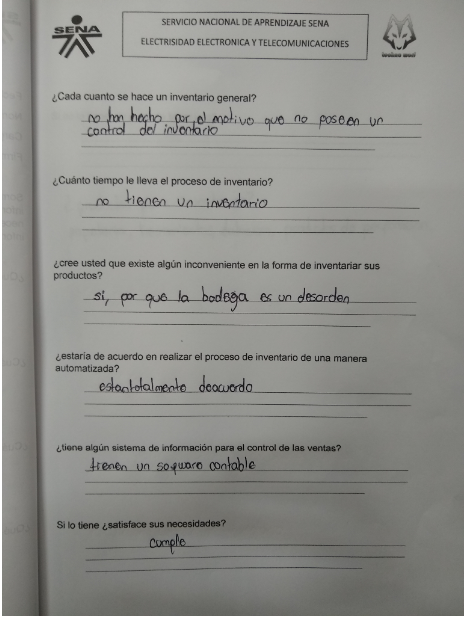 SENA
SERVICIO NACIONAL DE APRENDIZAJE SENA
ELECTRISIDAD ELECTRONICA Y TELECOMUNICACIONES
¿Cada cuanto se hace un inventario general?
no han hecho por el motivo que no poseen un
control del inventario
¿Cuánto tiempo le lleva el proceso de inventario?
no tienen un inventario
¿cree usted que existe algún inconveniente en la forma de inventariar sus
productos?
si, por que la bodega es un desorden
¿estaría de acuerdo en realizar el proceso de inventario de una manera
automatizada?
estantotalmente deacuerdo
¿tiene algún sistema de información para el control de las ventas?
tienen un contable
Si lo tiene ¿satisface sus necesidades?
cumple